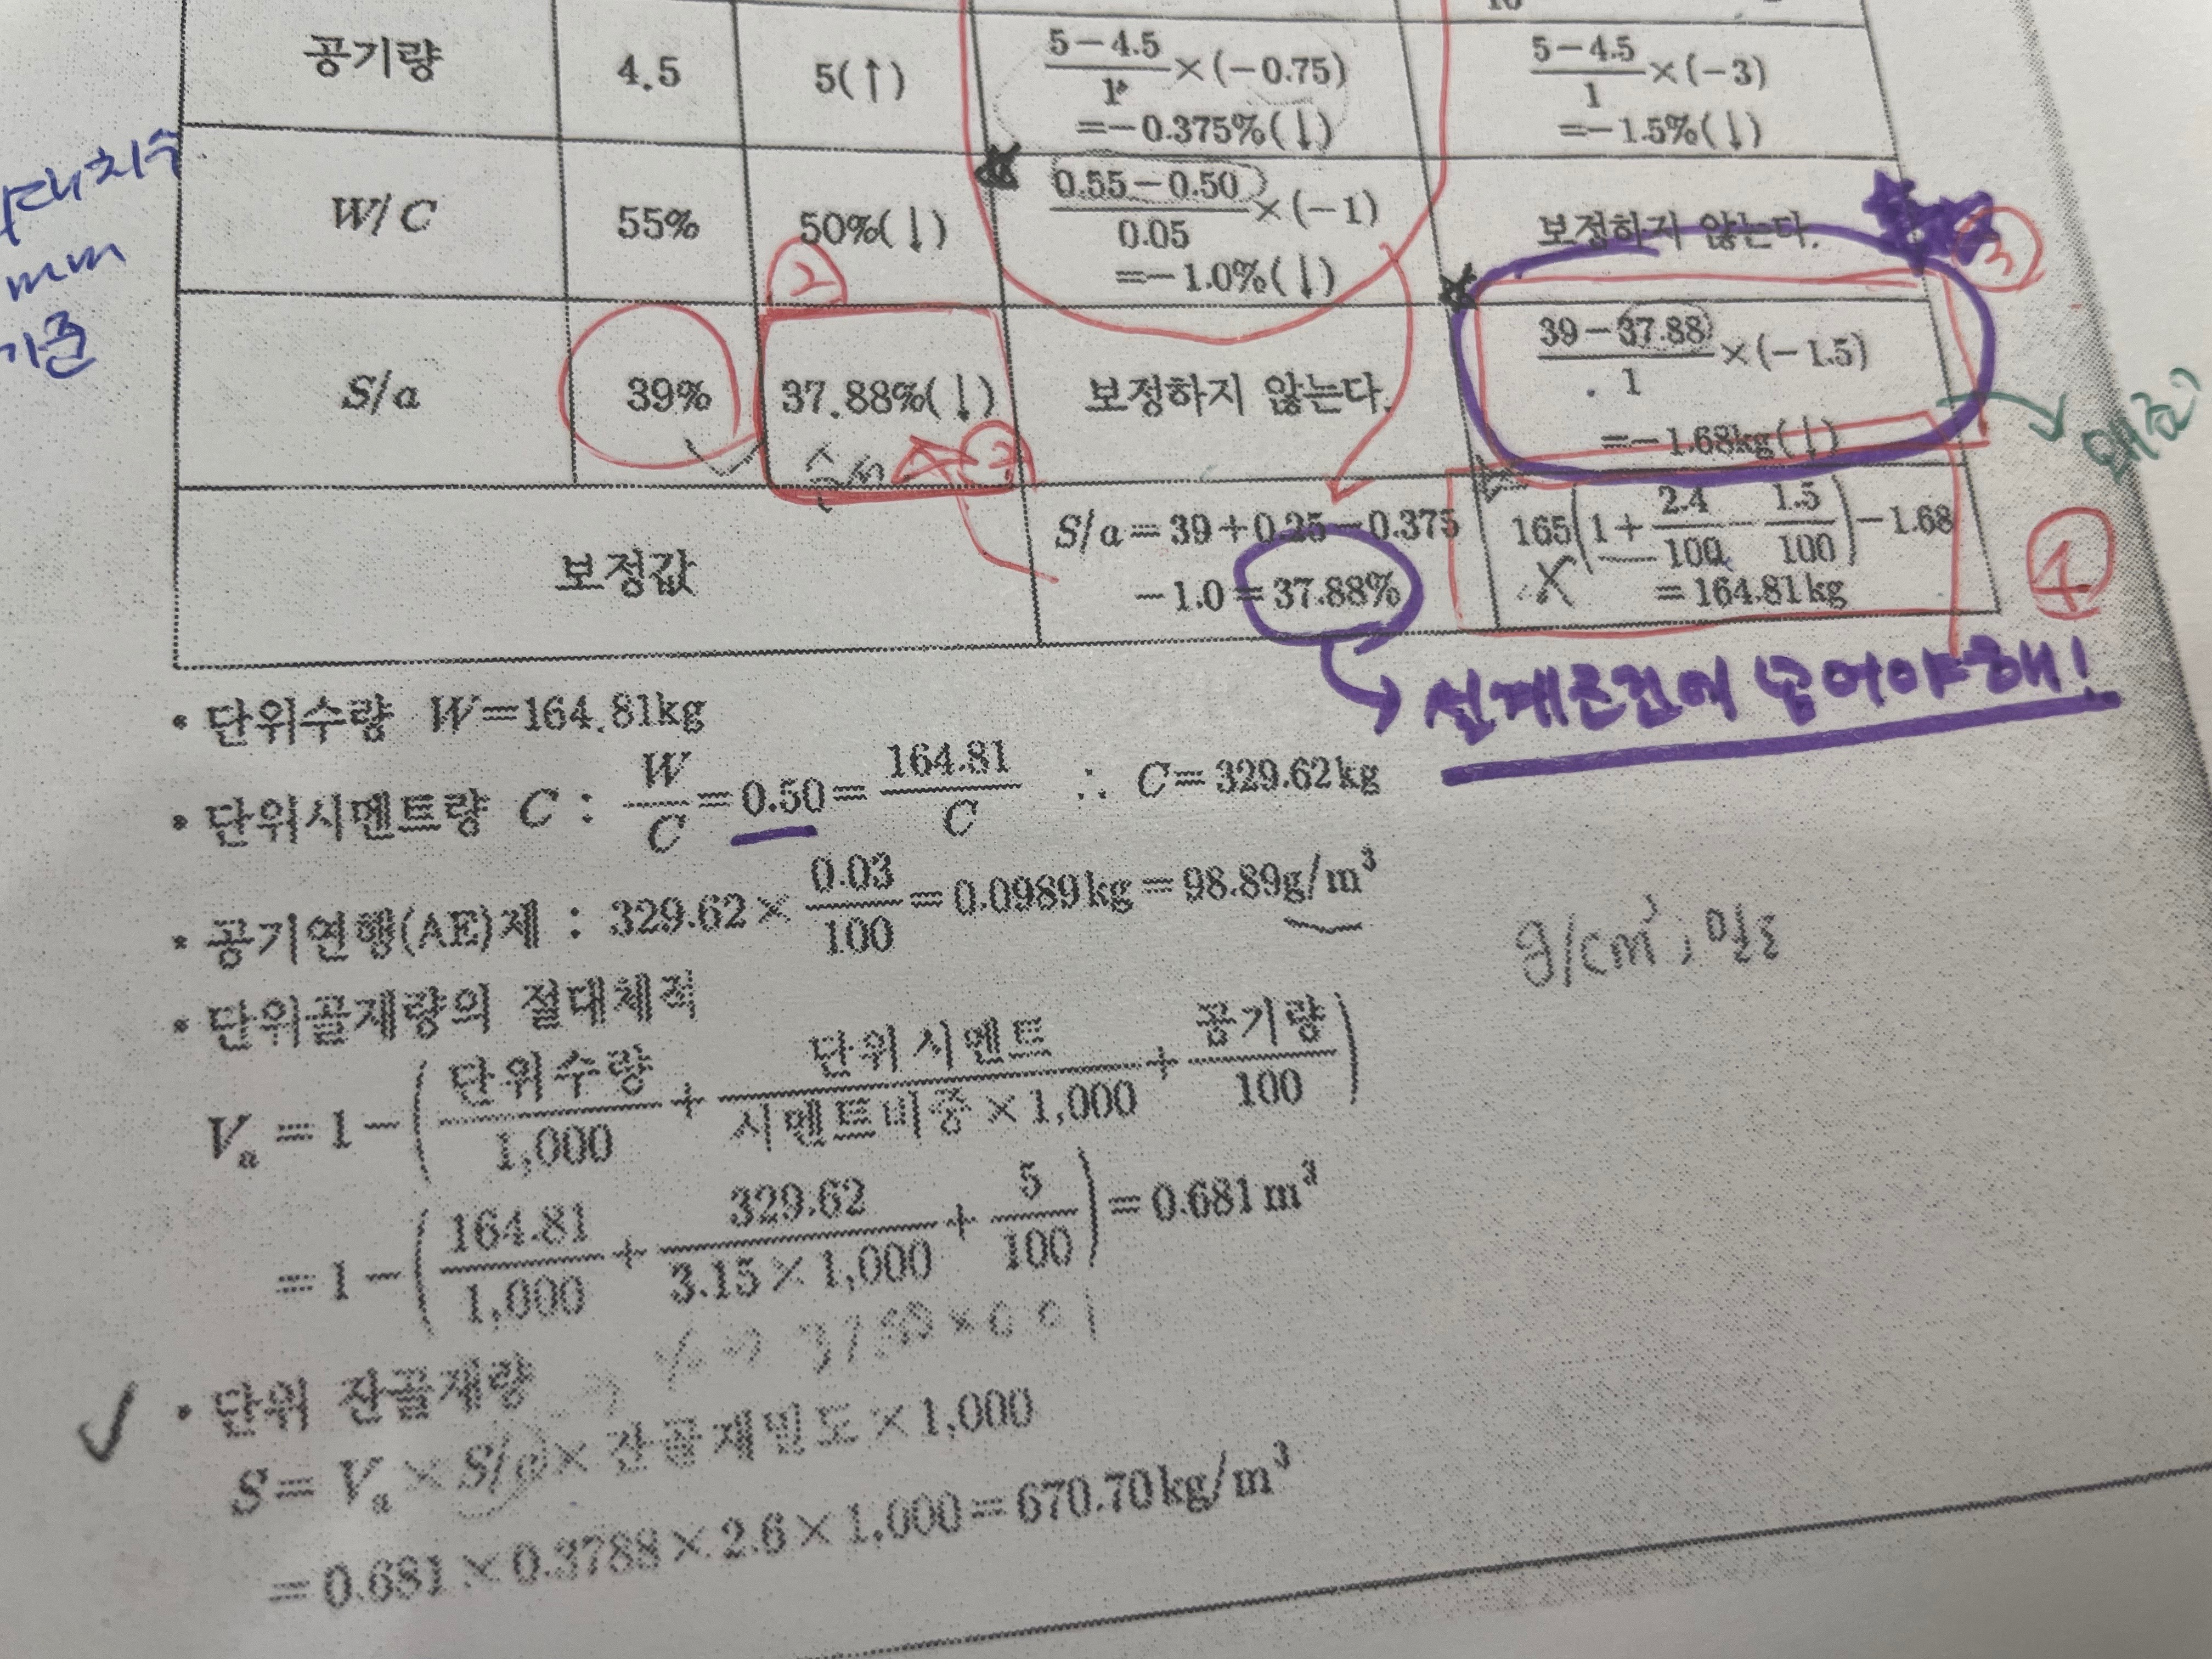 5－4.5 5－4.5
공기량 4.5 5(↑) ―×(－0.75) ―×(－3)
1 1
=－0.375%(↓) =－1.5%(↓)
0.55－0.50
W/C 55% 50%(↓) ―×(－1) 보정하지 않는다.
0.05
=－1.0%(↓)
mm
기준
② ③
39－37.88
S/a 39% 37.88%(↓) 보정하지 않는다. ―×(－1.5)
1
=－1.68kg(↓)
보정값
S/a=39+0.25－0.375
－1.0=37.88%
165(1+2.4/100－1.5/100)－1.68
=164.81kg
④
설계조건에 넣어야 해!
• 단위수량 W=164.81kg
• 단위시멘트량 C : W/C=0.50=164.81/C ∴ C=329.62kg
• 공기연행(AE)제 : 329.62×0.03/100=0.0989kg=98.89g/m³
g/cm³, 밀도
• 단위골재량의 절대체적
Vₐ=1－(단위수량/1,000+단위시멘트/시멘트비중×1,000+공기량/100)
=1－(164.81/1,000+329.62/3.15×1,000+5/100)=0.681m³
✓ • 단위 잔골재량
S=Vₐ×S/a×잔골재밀도×1,000
=0.681×0.3788×2.6×1,000=670.70kg/m³